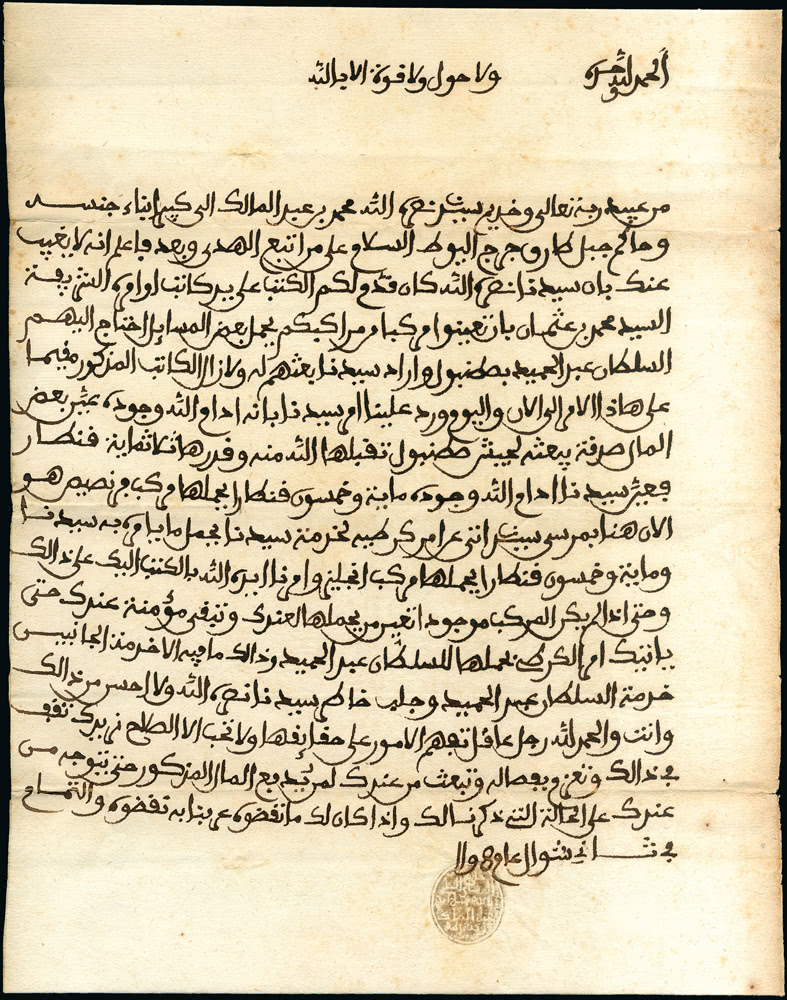 الحمد لله وحده ولا حول ولا قوة الا بالله
من عبيد ربه تعالى وخديم سيدنا نصره الله محمد بن عبد المالك الى كبير ابناء جنسه
وحاكم جبل طارق جرج اليوط السلام على من اتبع الهدى وبعد فاعلم انه لا يغيب
عنك بان سيدنا نصره الله كان قدم لكم الكتب على يد كاتب اوامره الشريفة
السيد محمد بن عثمان بان تعينوا مركبا من مراكبكم يحمل بعض المسايل احتاج اليهم
السلطان عبد الحميد بصطنبول واراد سيدنا بعثهم له ولازال الكاتب المذكور مقيما
على هاذا الامر الى الان واليوم ورد علينا امر سيدنا بانه ادام الله وجوده عين بعض
المال صدقة يبعثه لجيش صطنبول تقبلها الله منه وقدرها ثلاثماية قنطار
فعين سيدنا ادام الله وجوده ماية وخمسون قنطارا يحملها مركب فرنصيص هو
الان هنا بمرسى اتى من لخدمة سيدنا يحمل ما يامره به سيدنا
وماية وخمسون قنطارا يحملها مركب انجليز وامرنا ايده الله بالكتب اليك على ذالك
وحتى اذا لم يكن المركب موجودا تعين من يحملها لعندك وتبقى مؤمنة عندك حتى
ياتيك امر يحملها للسلطان عبد الحميد وذالك ما فيه الا خدمة الجانبين
خدمة السلطان عبد الحميد وجلب خاطر سيدنا نصره الله ولا احسن من ذالك
وانت والحمد لله رجل عاقل تفهم الامور على حقايقها ولا تحب الا الصلاح نريدك تقف
في ذالك وتعزم بفصاله وتبعث من عندك لمن يدفع المال المذكور حتى يتوجه من
عندك على الحالة التي ذكرنا لك واذا كان لك ما تقضوه عرفنا به نقضوه والتمام
في ثاني شوال عام